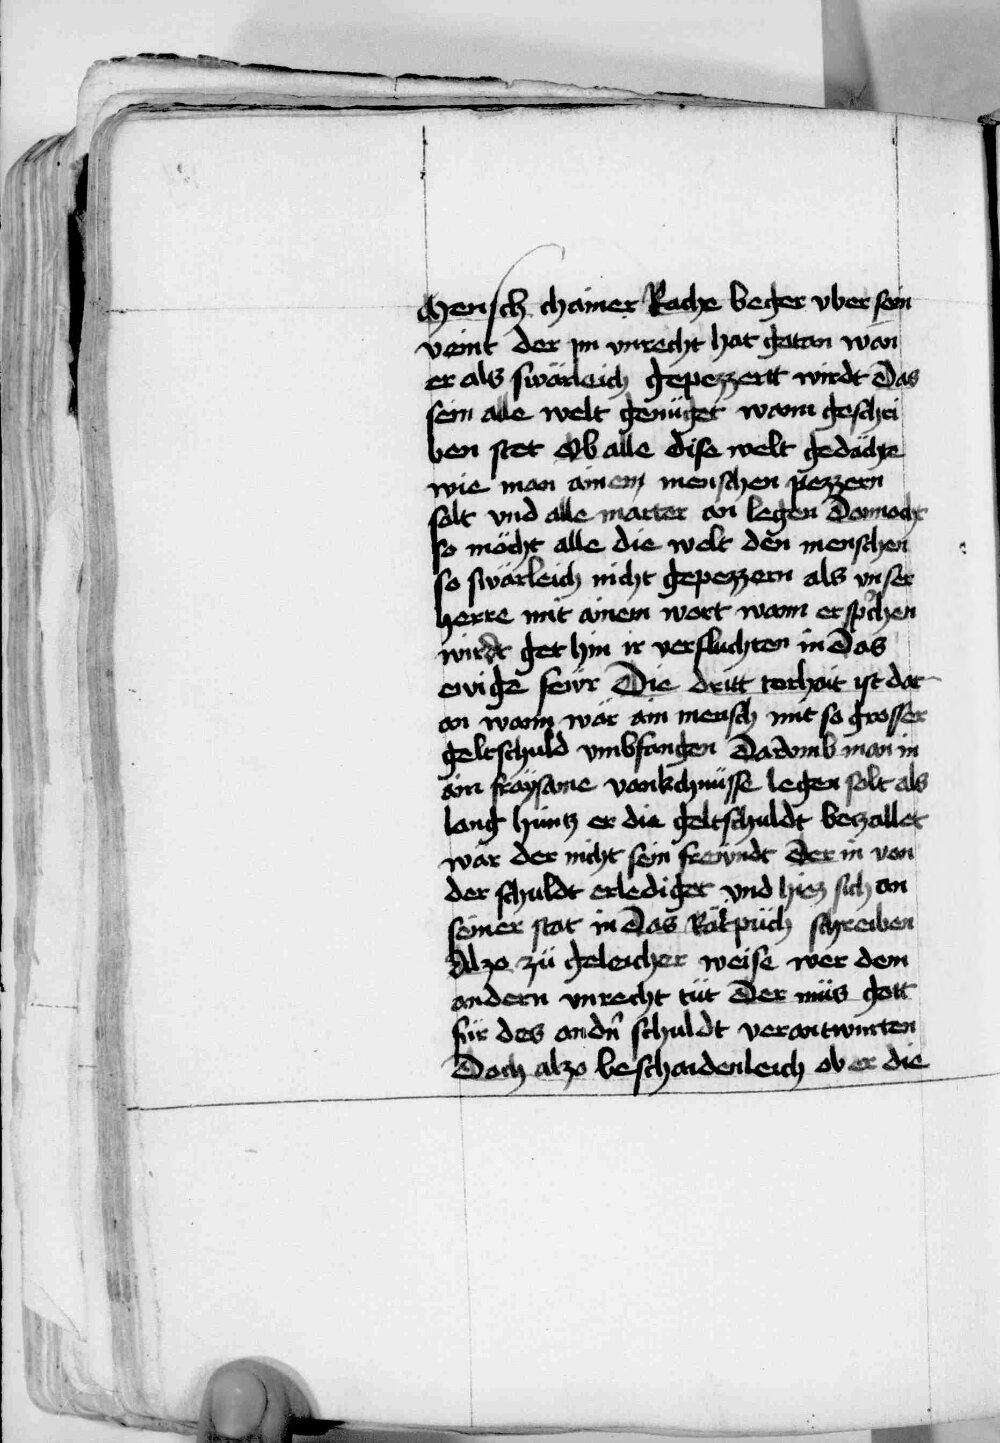 Mensch chainer Rache beger vber sein
veint der im vnrecht hat getan wan
er als swärleich gepezzertt wirdt Das
sein alle welt genüget wann geschri
ben stet Ob alle dise welt gedächte
wie man ainem menschen pezzern
solt vnd alle marter an legen Dannocht
so möcht alle die welt den menschen
so swärleich nicht gepezzern als vnser
herre mit ainem wort wann er sp̄chen
wirdt get hin ir verfluchten in Das
ewige fewr Die dritt torhait ist dar
an wann wär ain mensch mit so grosser
geltschuld vmbfangen Darvmb man in
ain fraysame vankchnüsse legen solt als
lang hüntz er die geltschuldt bezallet
war der nicht sein frewndt Der in von
der schuldt erlediget vnd hiez sich an
seiner stat in Das Rätpüch schreiben
Alzo zü geleicher weise wer dem
andern vnrecht tüt Der müs gott
für des andn̄ schuldt verantwurten
Doch alzo beschaidenleich ob er die